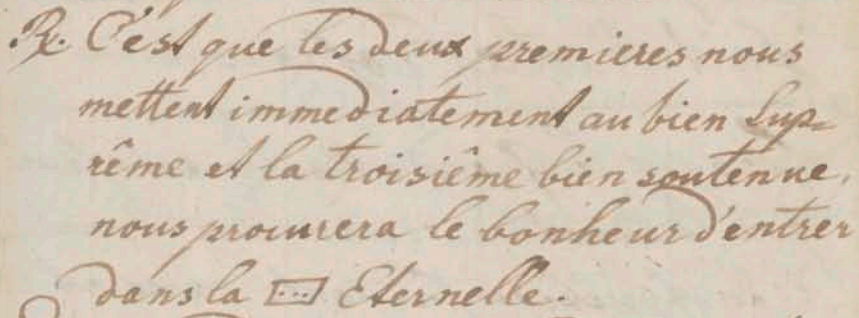 R. C'est que les deux premieres nous
mettent immediatement au bien Sup=
rême et la troisiême bien soutenue,
nous procurera le bonheur d'entrer
dans la [...] Eternelle.